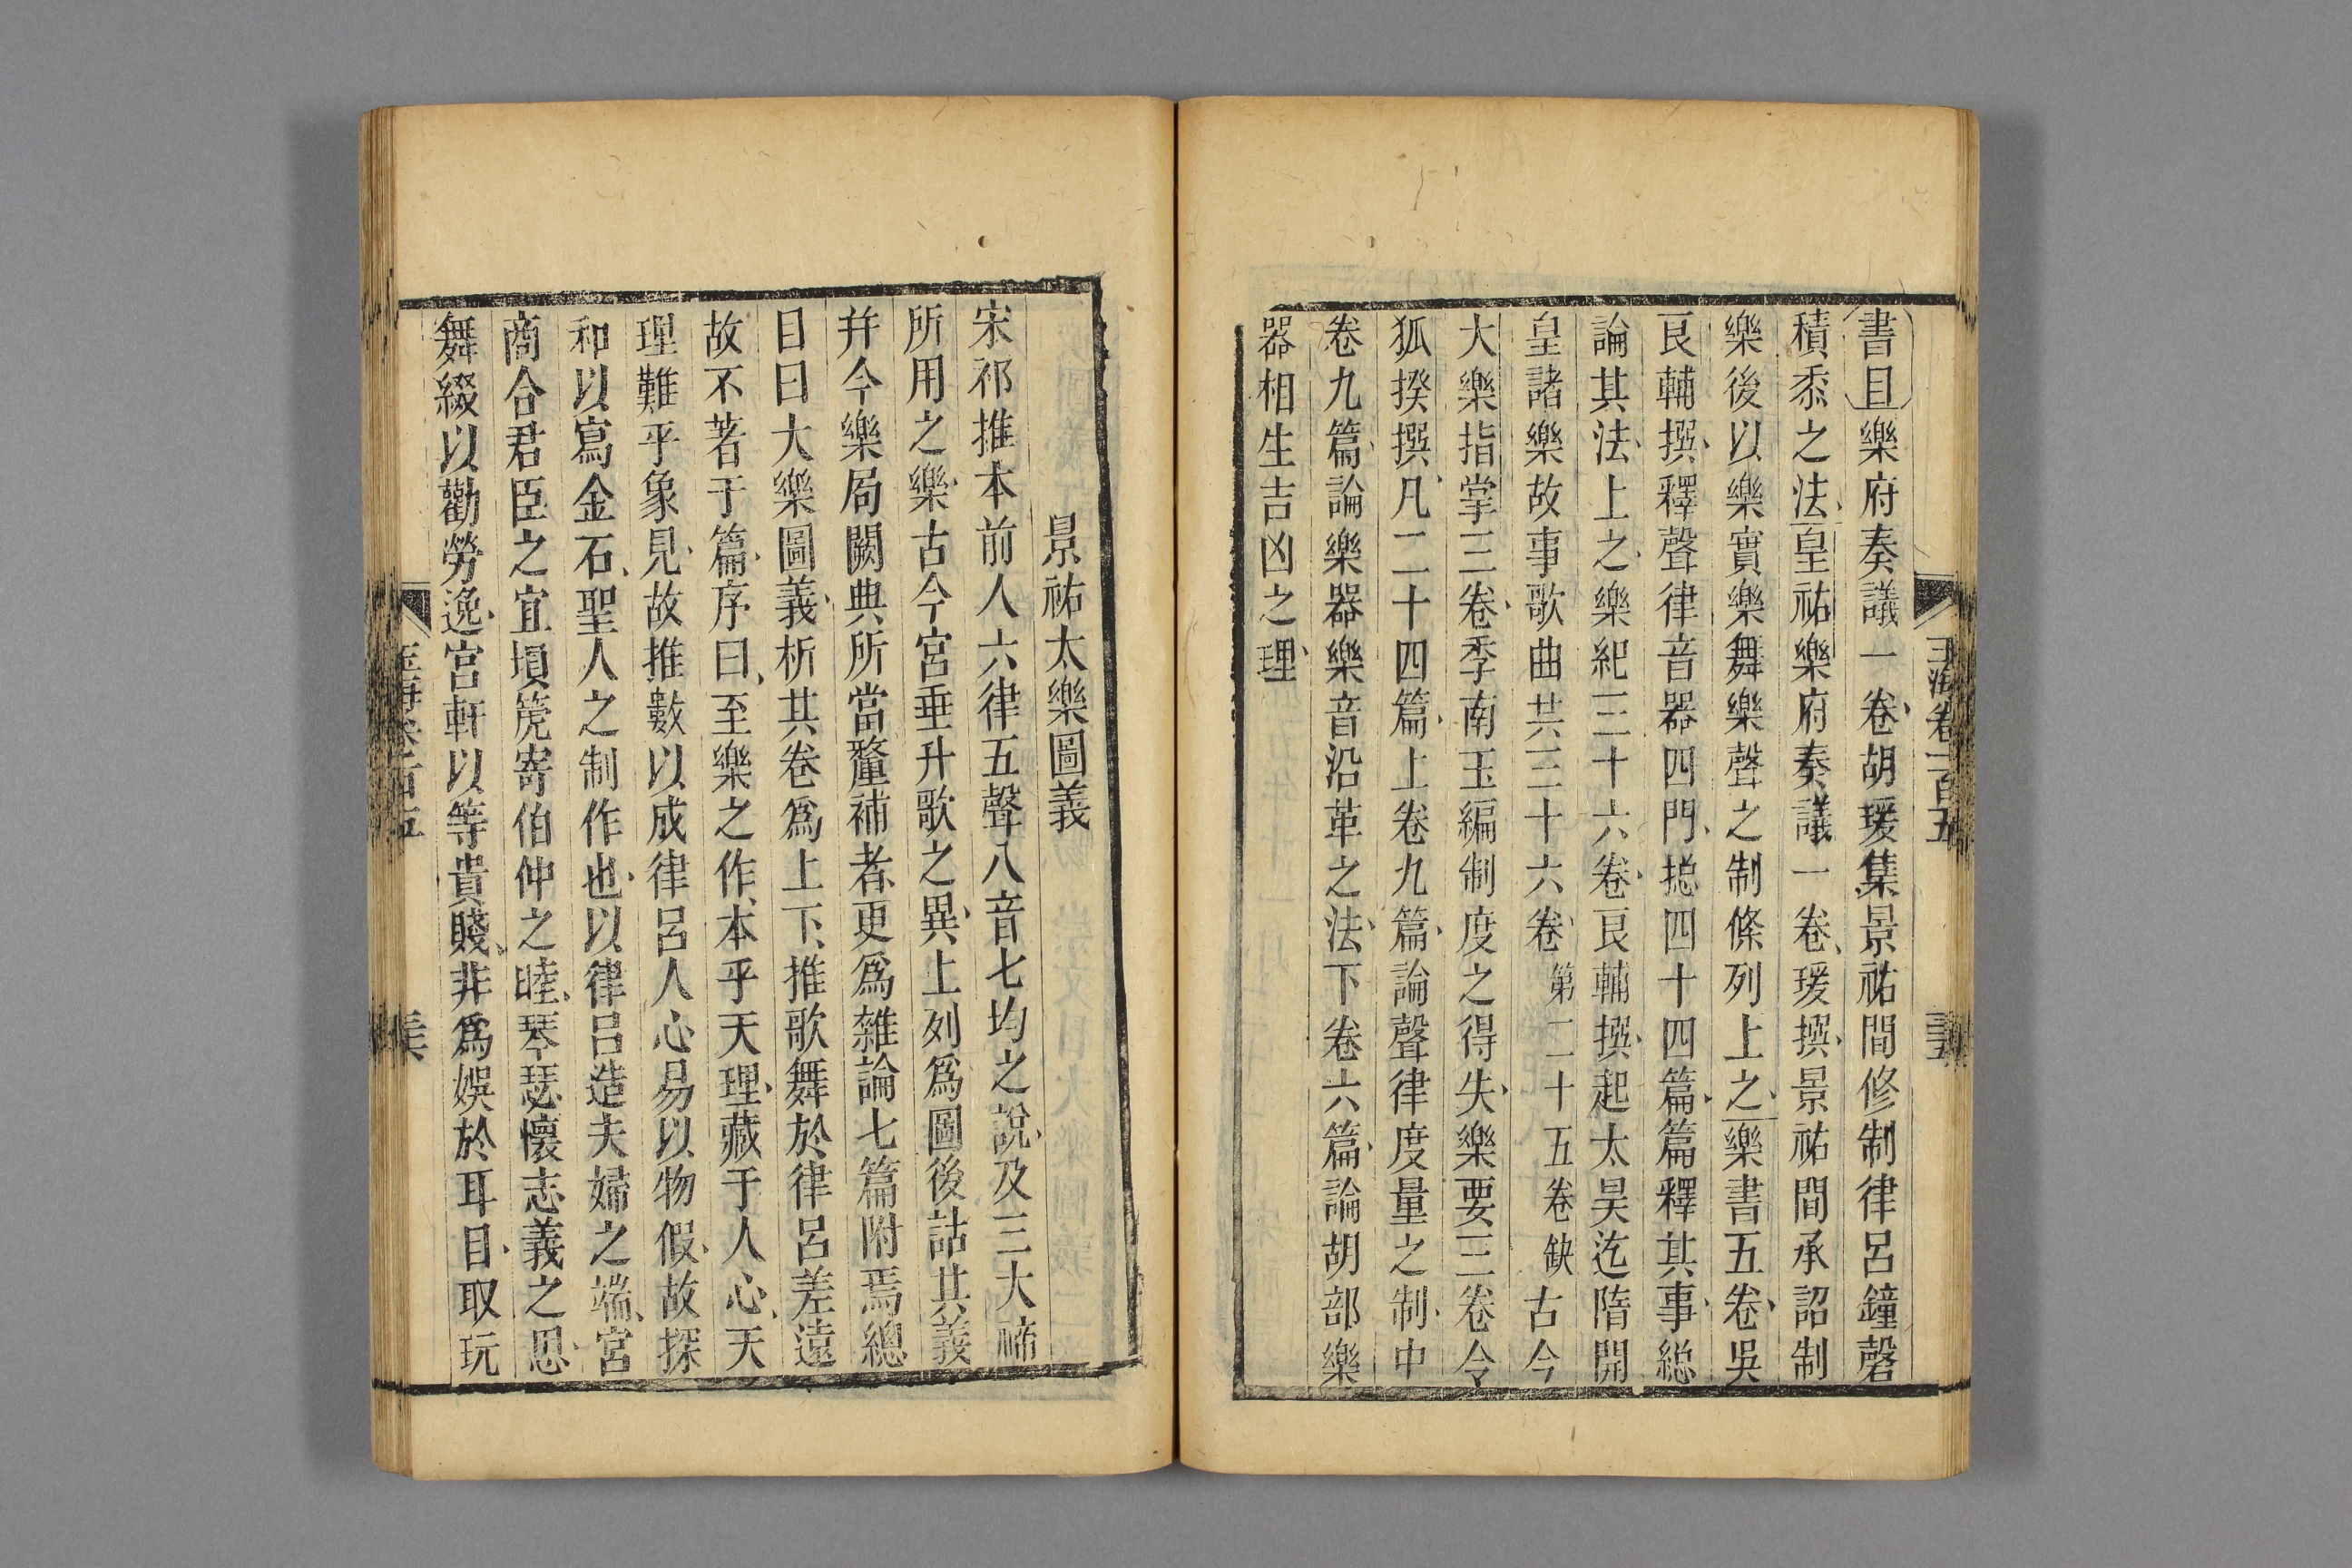 書目樂府奏議一卷胡瑗集景祐間修制律呂鐘磬
積黍之法皇祐樂府奏議一卷瑗撰景祐間承詔制
樂後以樂實樂舞樂聲之制條列上之樂書五卷吳
良輔撰釋聲律音器四門摠四十四篇篇釋其事総
論其法上之樂紀三十六卷良輔撰起太昊迄隋開
皇諸樂故事歌曲共三十六卷第二十五卷缺古今
大樂指掌三卷季南玉編制度之得失樂要三卷令
狐揆撰凡二十四篇上卷九篇論聲律度量之制中
卷九篇論樂器樂音沿革之法下卷六篇論胡部樂
器相生吉凶之理
玉海卷一百五
景祐太樂圖義
宋祁推本前人六律五聲八音七均之說及三大禘
所用之樂古今宮垂升歌之異上列爲圖後詁其義
幷今樂局闕典所當釐補者更爲雜論七篇附焉總
目曰大樂圖義析其卷爲上下推歌舞於律呂差遠
故不著于篇序曰至樂之作本乎天理藏于人心天
理難乎象見故推數以成律呂人心易以物假故探
和以寫金石聖人之制作也以律呂造夫婦之端宮
商合君臣之宜塤箎寄伯仲之睦琴瑟懷志義之思
舞綴以勸勞逸宮軒以等貴賤非爲娛於耳目取玩